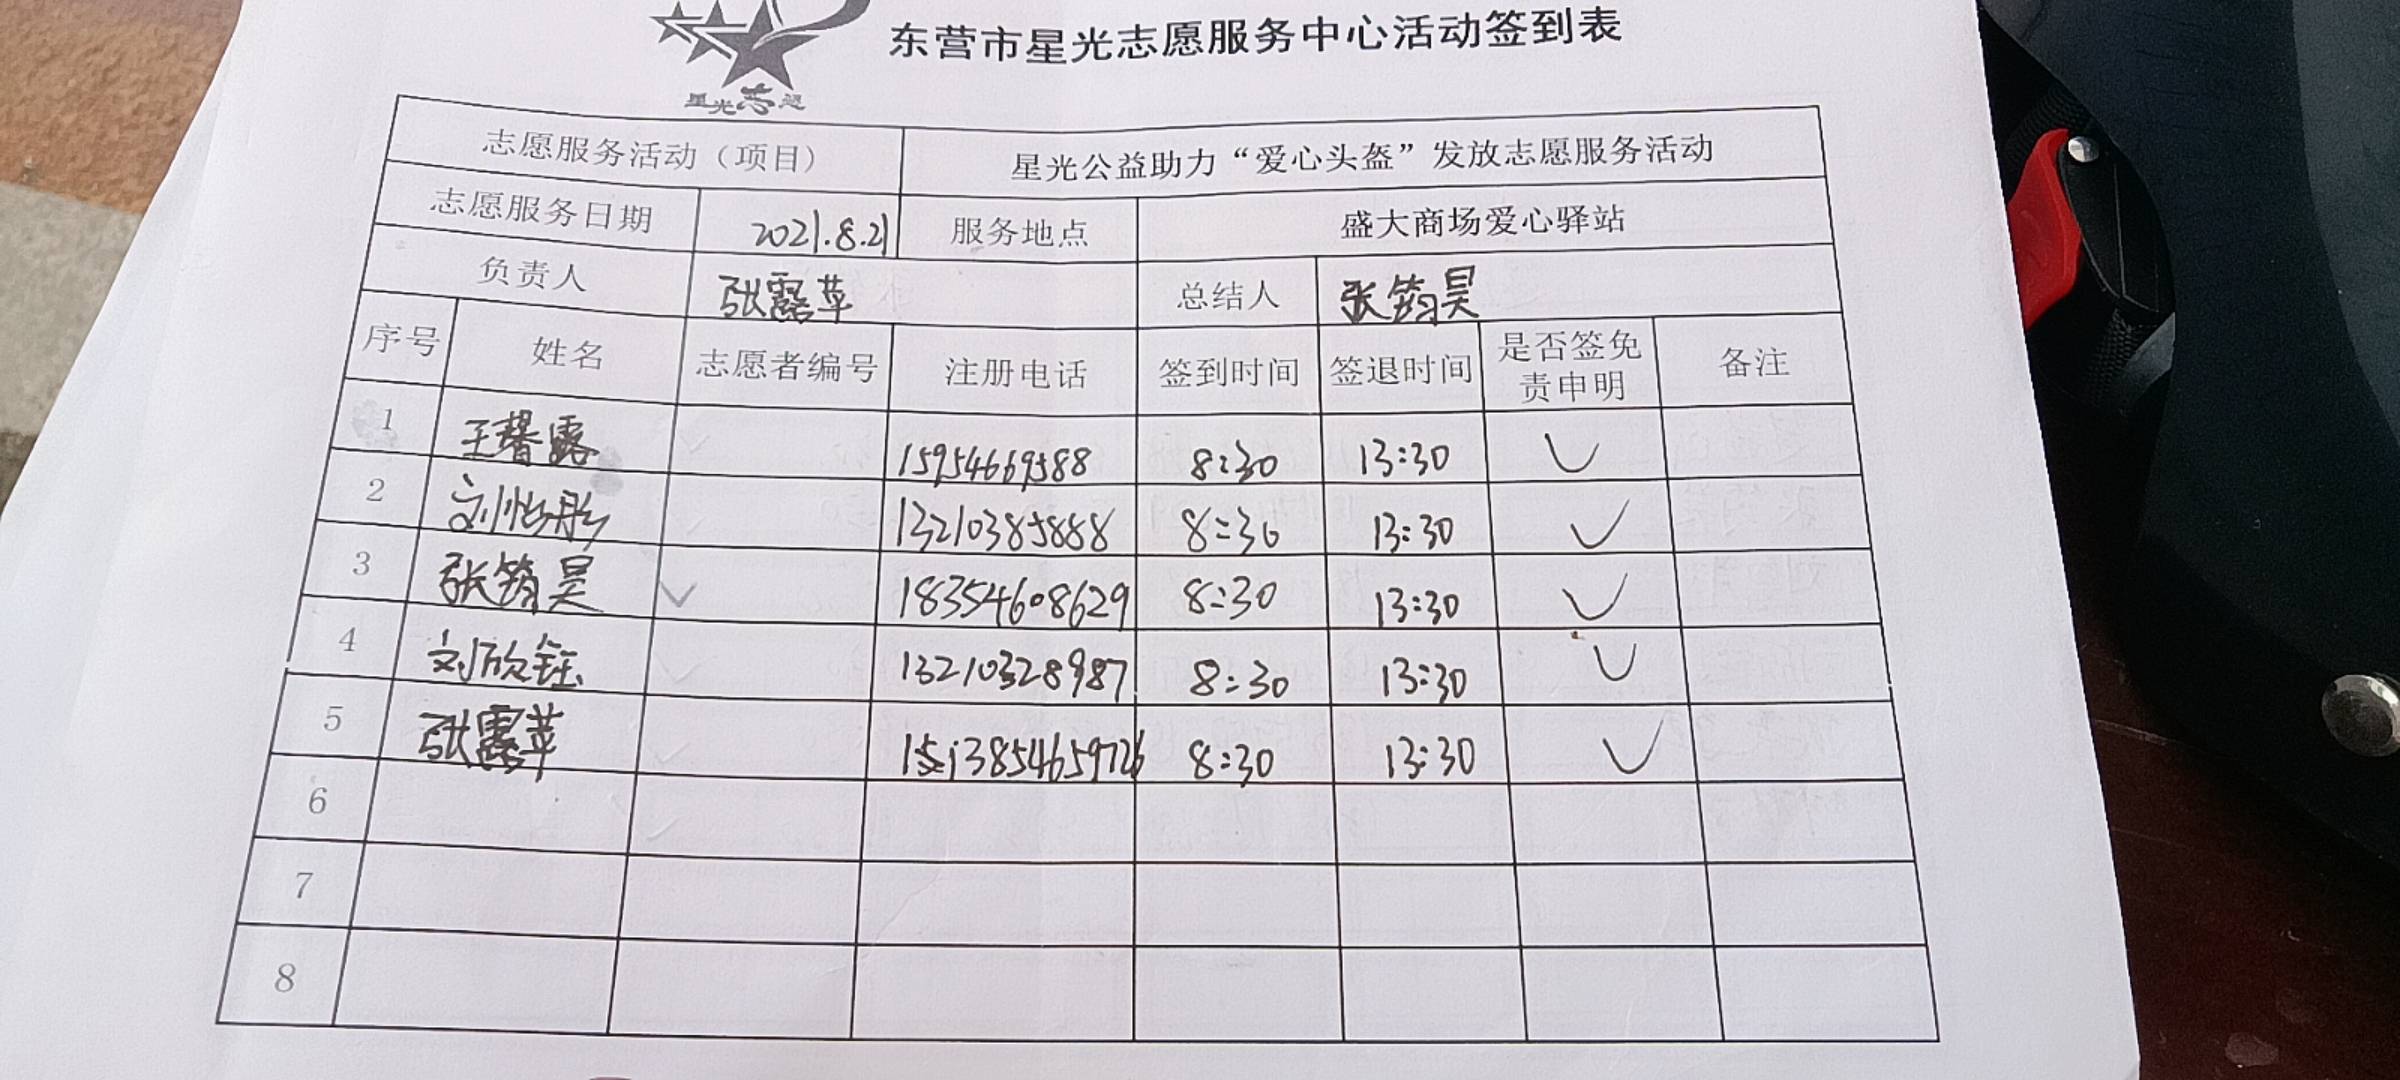 东营市星光志愿服务中心活动签到表
星光志愿
志愿服务活动（项目） 星光公益助力“爱心头盔”发放志愿服务活动
志愿服务日期 2021.8.21 服务地点 盛大商场爱心驿站
负责人 张露苹 总结人 张筠昊
序号 姓名 志愿者编号 注册电话 签到时间 签退时间 是否签免责申明 备注
1 王馨露 15954669588 8:30 13:30 ✓
2 刘怡彤 13210385888 8:30 13:30 ✓
3 张筠昊 ✓ 18354608629 8:30 13:30 ✓
4 刘欣钰 13210328987 8:30 13:30 ✓
5 张露苹 13854659726 8:30 13:30 ✓
6
7
8